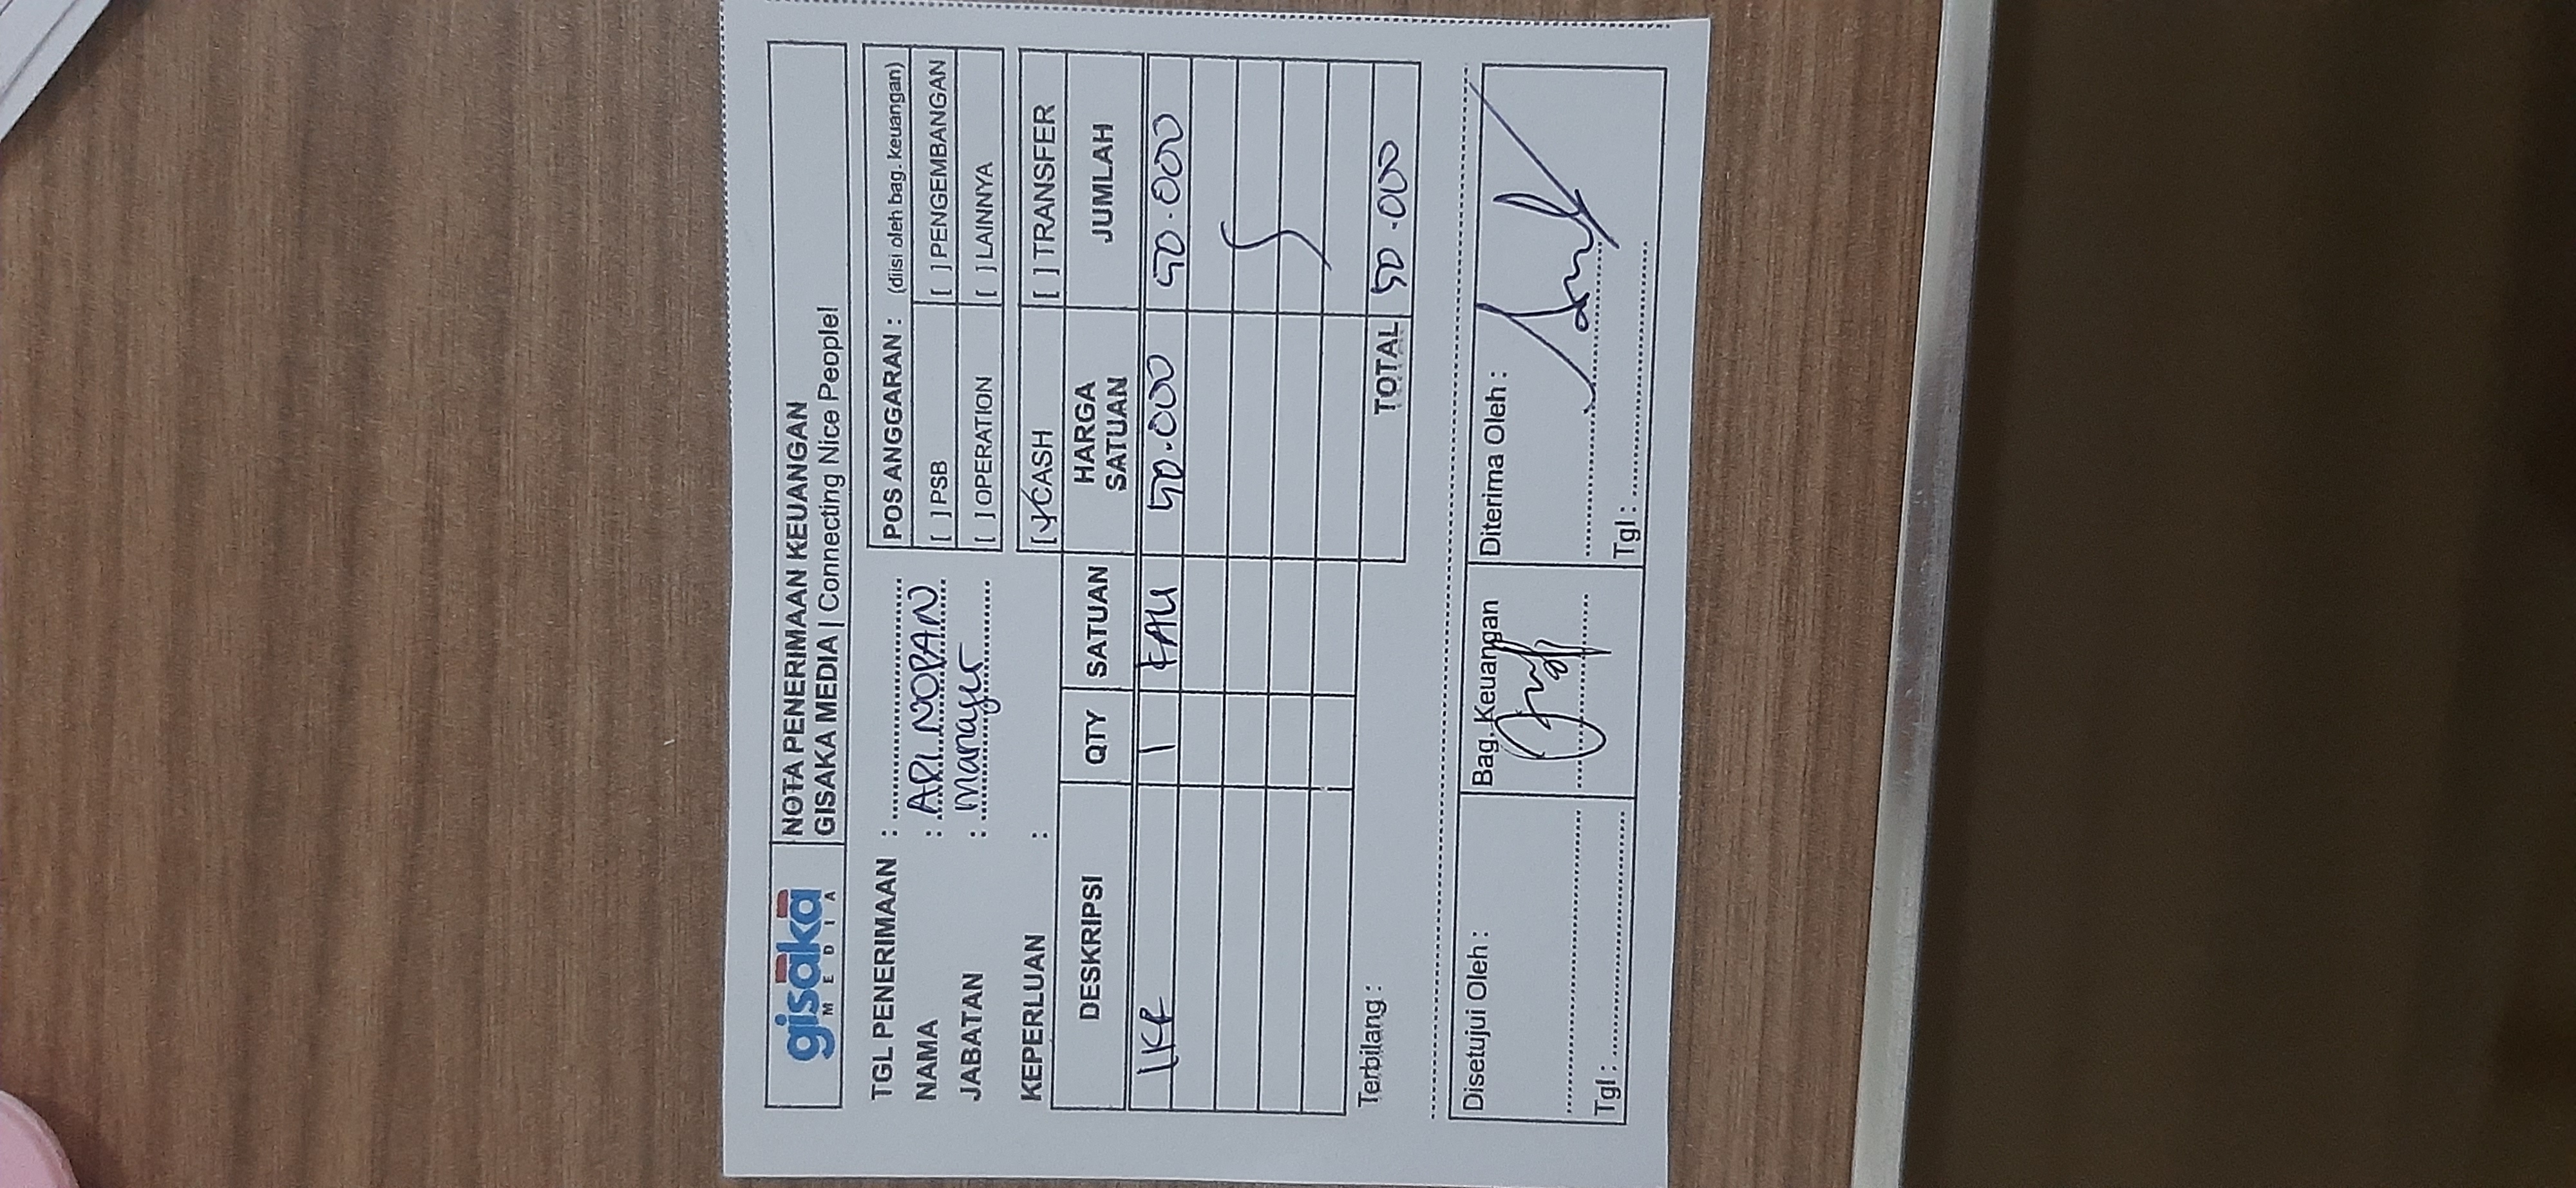 gisaka
MEDIA
NOTA PENERIMAAN KEUANGAN
GISAKA MEDIA | Connecting Nice People!
TGL PENERIMAAN :
NAMA : ARI NOPAN
JABATAN : manager
POS ANGGARAN : (diisi oleh bag. keuangan)
[ ] PSB [ ] PENGEMBANGAN
[ ] OPERATION [ ] LAINNYA
KEPERLUAN :
[✓] CASH [ ] TRANSFER
DESKRIPSI QTY SATUAN HARGA SATUAN JUMLAH
IKR 1 KALI 50.000 50.000
Terbilang :
TOTAL 50.000
Disetujui Oleh : Bag. Keuangan Diterima Oleh :
Tgl : Tgl :